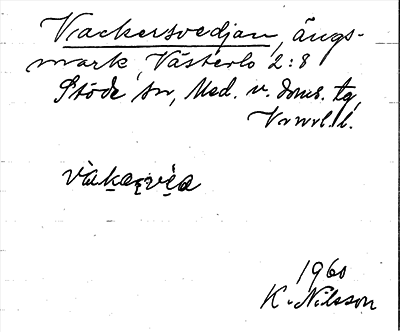 Vackersvedjan, ängs-
mark, Västerlo 2:8
Stöde sn, Med. v. doms. tg,
Vnvrl. l.
1960
K. Nilsson